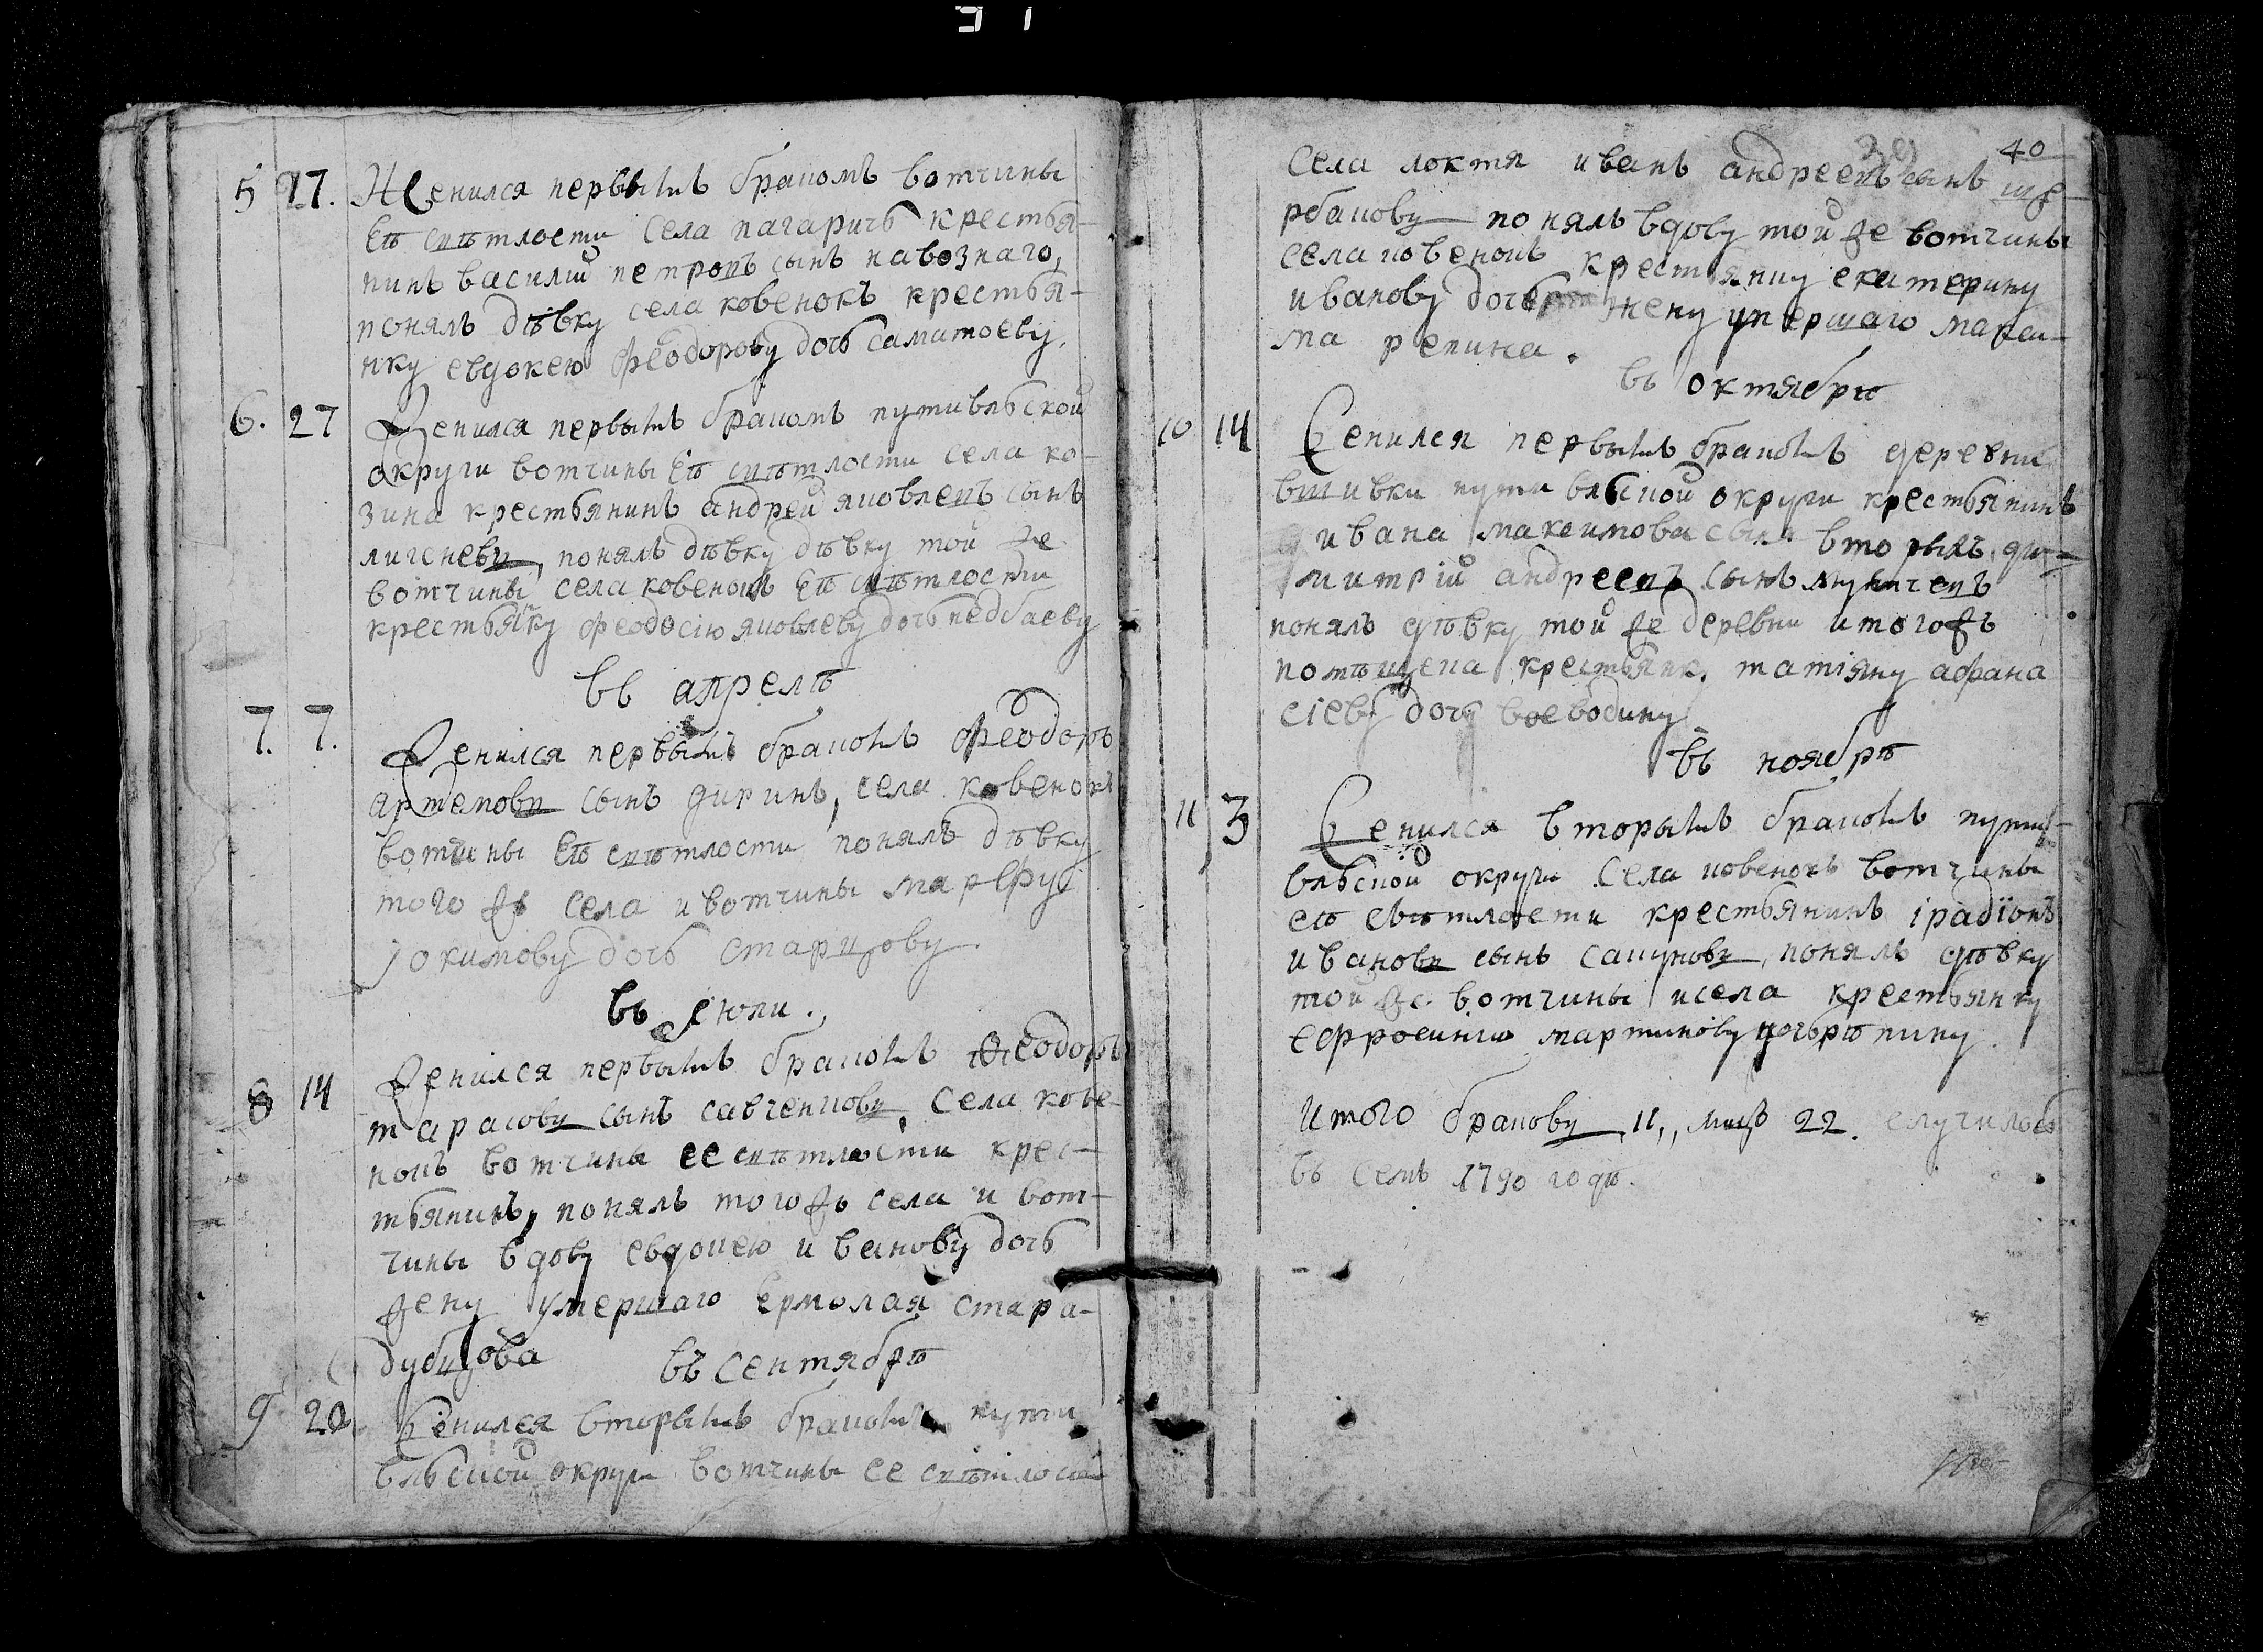 5 27. Женился первымъ бракомъ вотчины
Еѣ свѣтлости села пагаричь крестья-
нинъ василий петровъ сынъ навознаго,
понялъ дѣвку села ковенокъ крестья-
нку евдокею феодорову дочь саматоеву.
6. 27 Женился первымъ бракомъ путивльской
округи вотчины Еѣ свѣтлости села ко-
зина крестьянинъ андрей яковлевъ сынъ
понялъ дѣвку дѣвку той же
вотчины села ковенокъ Еѣ свѣтлости
крестьянку феодосію яковлеву дочь недбаеву
въ апрелѣ
7. 7. Женился первымъ бракомъ феодоръ
артемовъ сынъ диринъ, села ковенокъ
вотчины Еѣ свѣтлости понялъ дѣвку
того жъ села и вотчины марѳу
іокимову дочь старцову.
въ июли.
8 14 Женился первымъ бракомъ феодоръ
тарасовъ сынъ савченковъ, села кове-
нокъ вотчины ее свѣтлости крес-
тьянинъ, понялъ того жъ села и вот-
чины вдову евдокею иванову дочь
жену умершаго ермолая стара-
дубцова
въ сентябрѣ
9 20 Женился вторымъ бракомъ пути
вльской округи вотчины ее свѣтлости
40
39
села локтя иванъ андреевъ сынъ ще-
рбаковъ понялъ вдову той же вотчины
села ковенокъ крестьянку екатерину
иванову дочь жену умершаго макси-
ма репина.
въ октябрѣ
10 14 Женился первымъ бракомъ деревни
вшивки путивльской округи крестьянинъ
ивана максимова сына вторыхъ ди-
митрій андреевъ сынъ
понялъ дѣвку той же деревни и того жъ
помѣщика крестьянку татіяну афана
сіеву дочь воеводину
въ ноябрѣ
11 3 Женился вторымъ бракомъ пути-
вльской округи села ковенокъ вотчины
еѣ свѣтлости крестьянинъ ірадіонъ
ивановъ сынъ сашуновъ, понялъ дѣвку
той же вотчины и села крестьянку
ефросинию мартинову дочь рѣпину.
Итого браковъ 11,, лицъ 22. случилось
въ семъ 1790 годѣ.